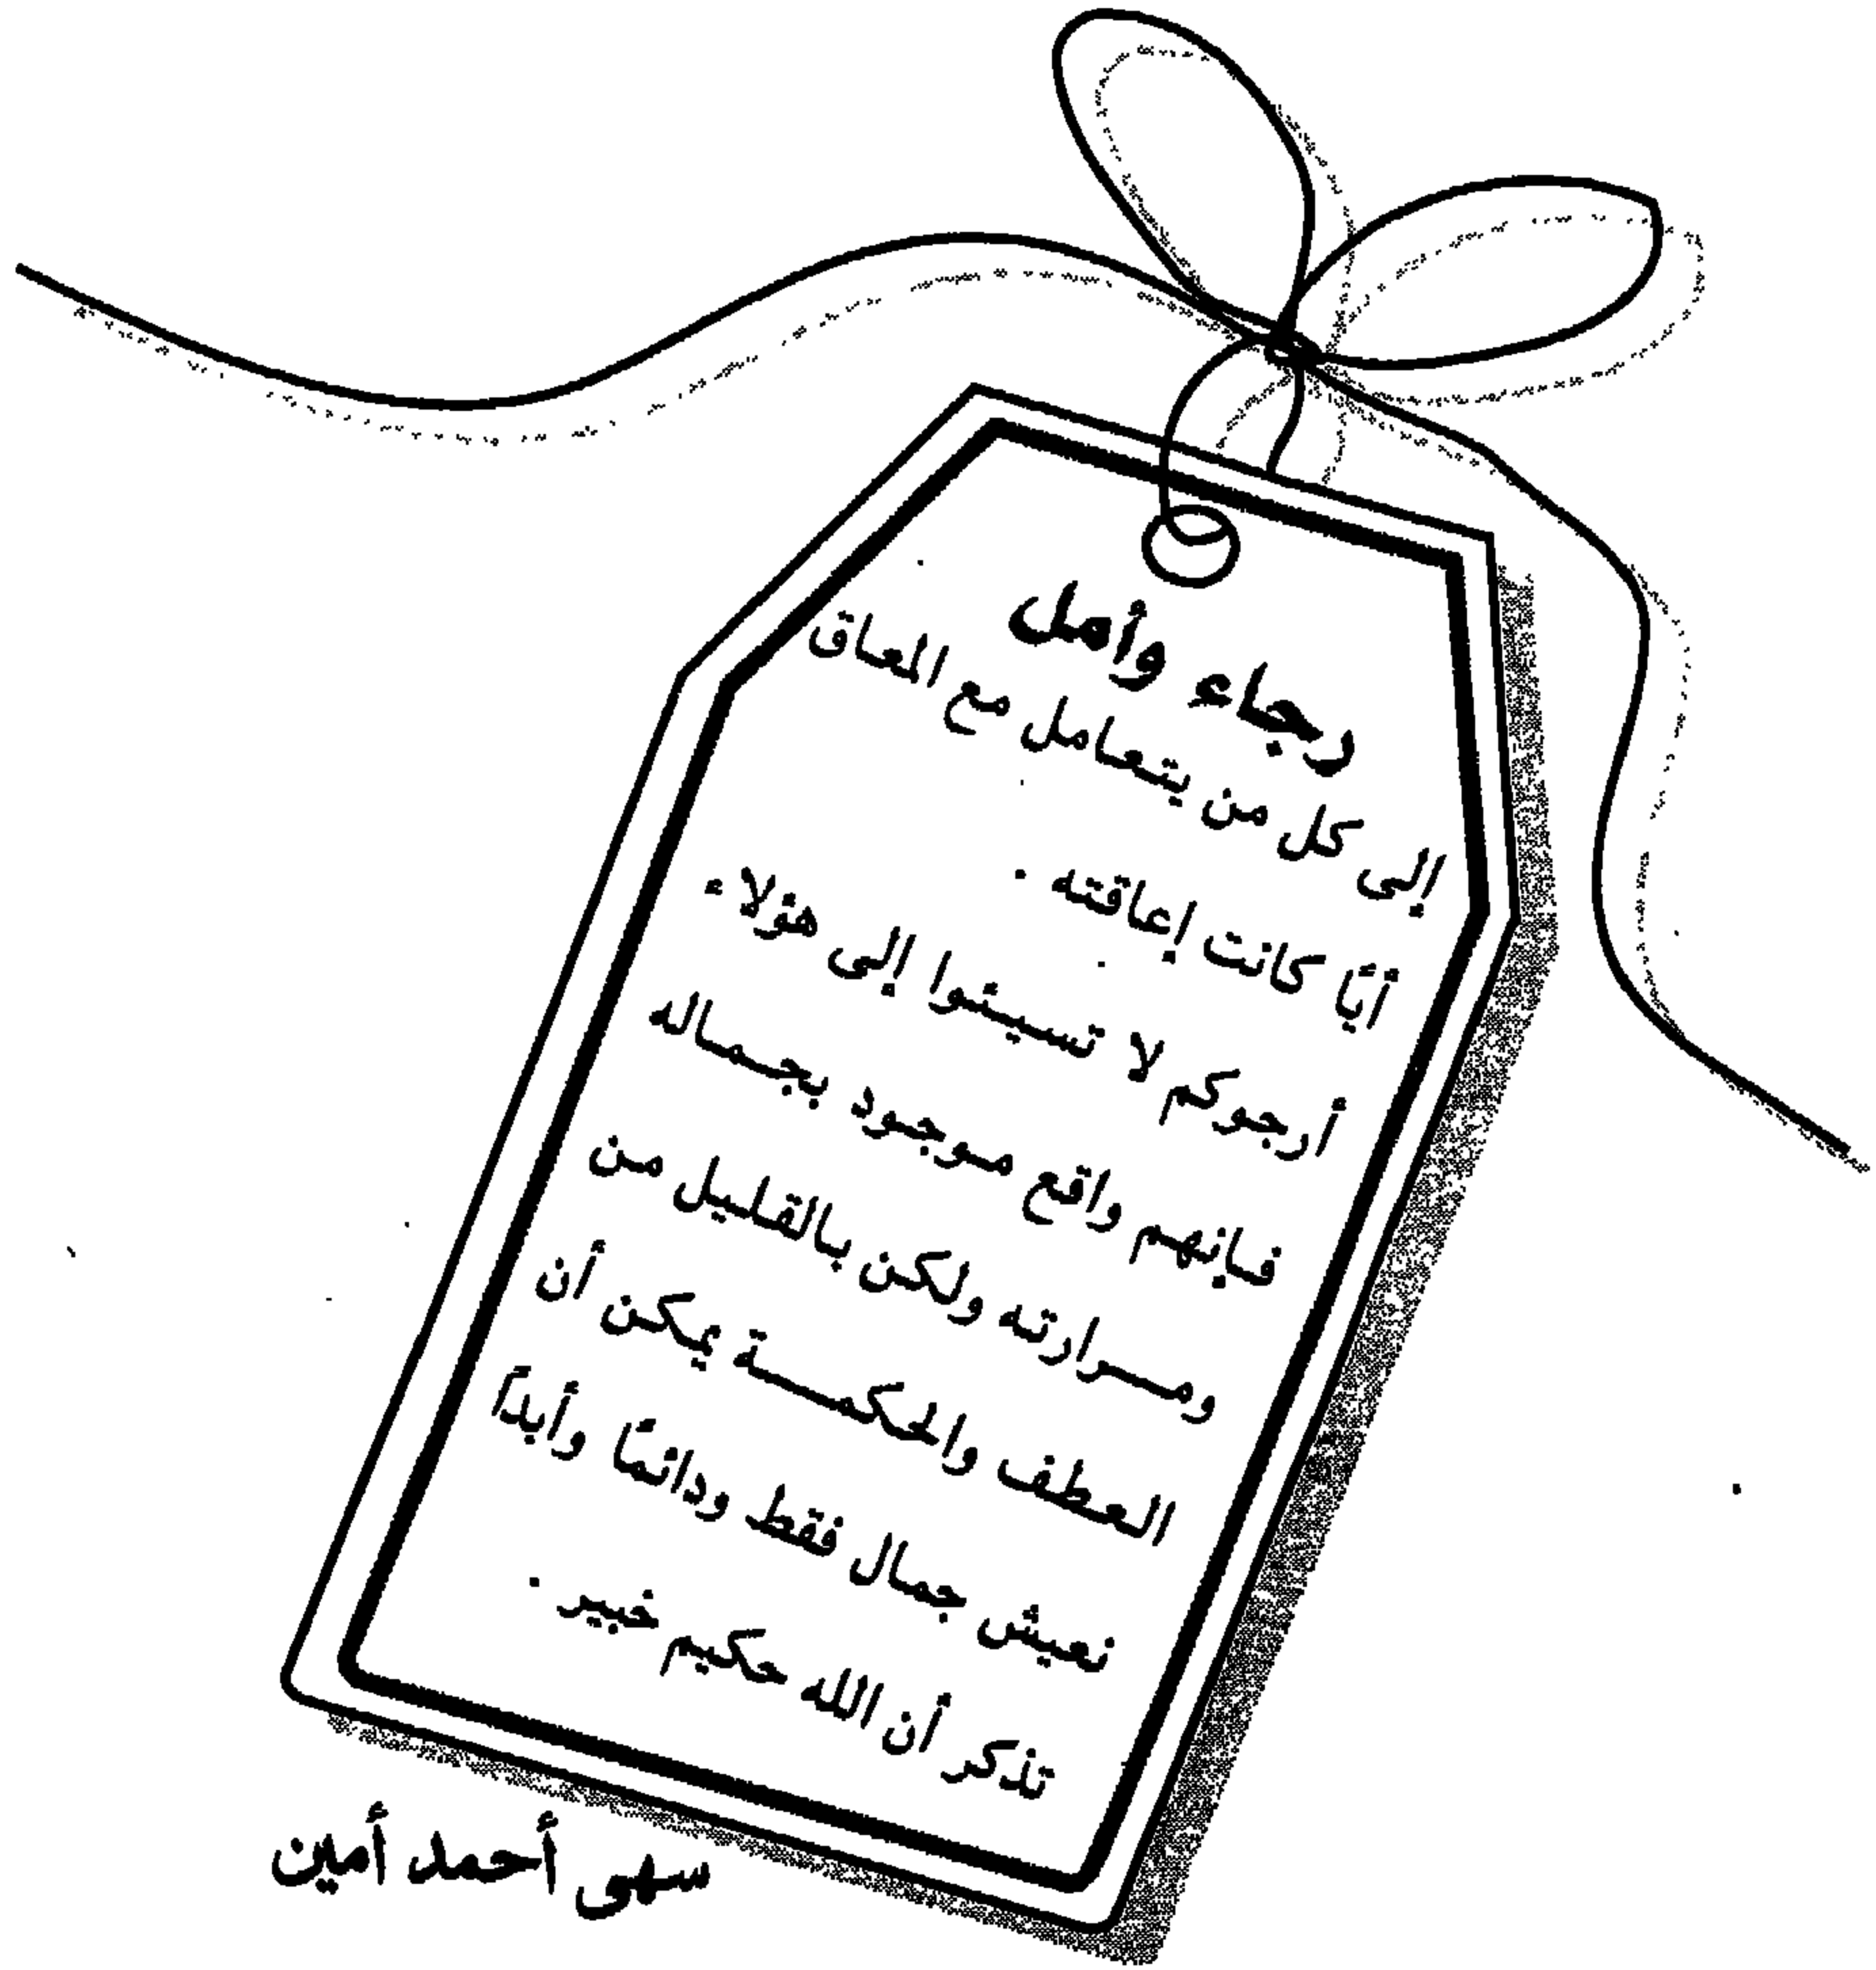 رجاء وأمل
إلى كل من يتعامل مع المعاق
أيًا كانت إعاقته .
أرجوكم لا تسيئوا إلى هؤلاء
فإنهم واقع موجود بجماله
ومرارته ولكن بالقليل من
العطف والحكمة يمكن أن
نعيش جمال فقط ودائمًا وأبدًا
تذكر أن الله حكيم خبير .
سهى أحمد أمين